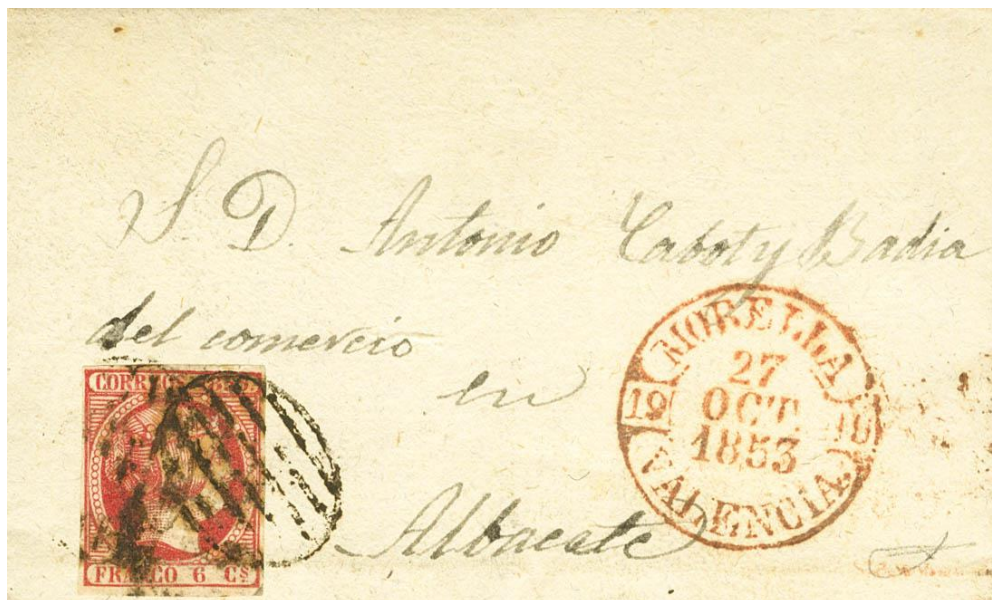 S. D. Antonio Cabot y Badia
del comercio
en
Albacete
CORREOS
FRANCO 6 Cs
MORELLA
27
OCT.
1853
10 10
VALENCIA.